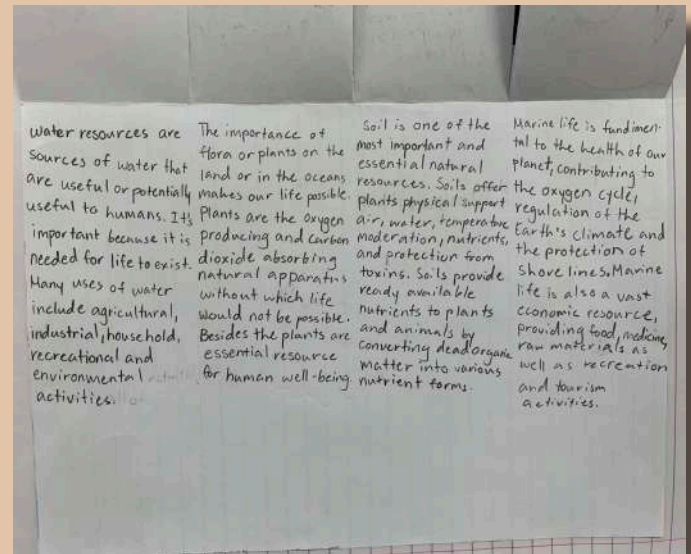 water resources are
sources of water that
are useful or potentially
useful to humans. Its
important because it is
needed for life to exist.
Many uses of water
include agricultural,
industrial, household,
recreational and
environmental
activities.
The importance of
flora or plants on the
land or in the oceans
makes our life possible.
Plants are the oxygen
producing and carbon
dioxide absorbing
natural apparatus
without which life
would not be possible.
Besides the plants are
essential resource
for human well-being.
Soil is one of the
most important and
essential natural
resources. Soils offer
plants physical support
air, water, temperature
moderation, nutrients,
and protection from
toxins. Soils provide
ready available
nutrients to plants
and animals by
converting dead organic
matter into various
nutrient forms.
Marine life is fundimen-
tal to the health of our
planet, contributing to
the oxygen cycle,
regulation of the
Earth's climate and
the protection of
shore lines. Marine
life is also a vast
economic resource,
providing food, medicine,
raw materials as
well as recreation
and tourism
activities.